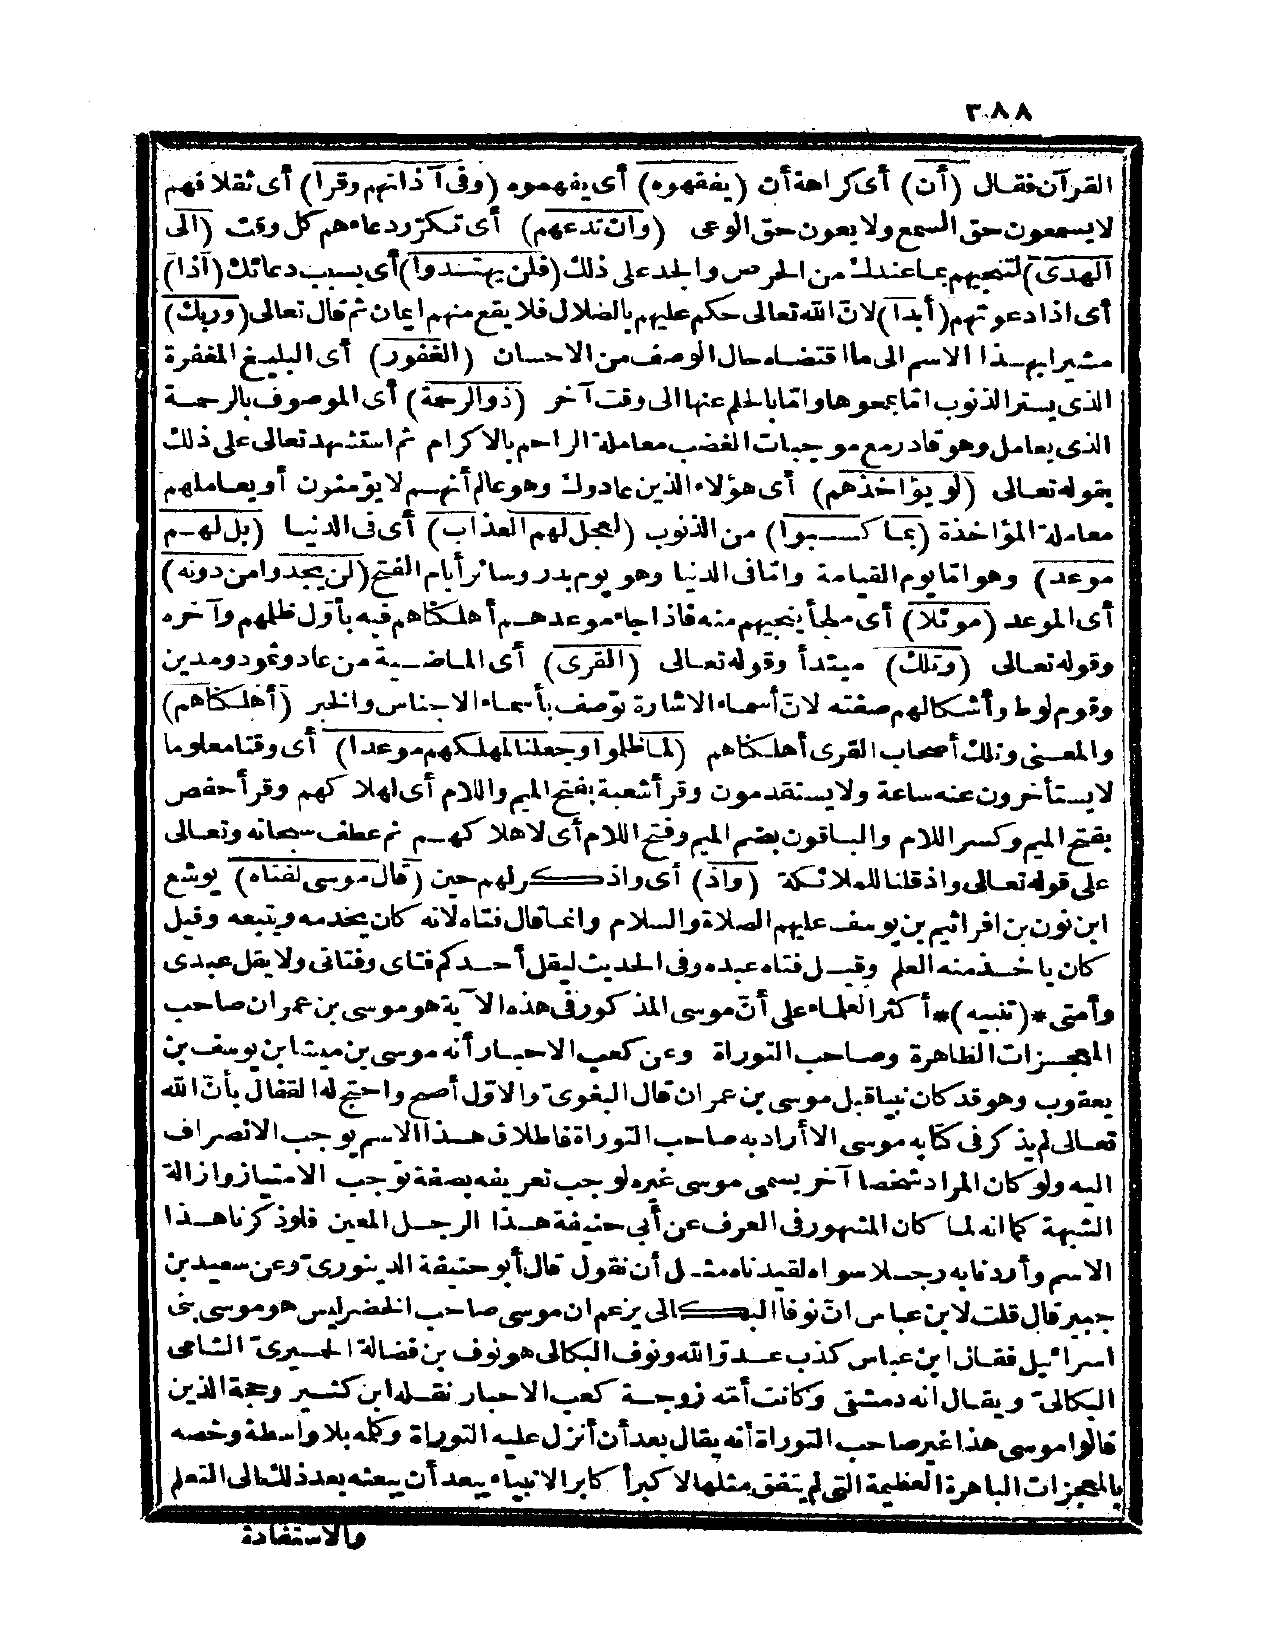 ٣٨٨
القرآن فقال (أن) أى كراهة أن (يفقهوه) أى يفهموه (وفى آذانهم وقرا) أى ثقلا فهم
لا يسمعون حق السمع ولا يعون حق الوعى (وان تدعهم) أى تكرّر دعاءهم كل وقت (الى
الهدى) لتنجيهم بما عندك من الحرص والجد على ذلك (فلن يهتدوا) أى بسبب دعائك (اذا)
أى اذا دعوتهم (أبدا) لانّ الله تعالى حكم عليهم بالضلال فلا يقع منهم ايمان ثم قال تعالى (وربك)
مشيرا بهذا الاسم الى ما اقتضاه حال الوصف من الاحسان (الغفور) أى البليغ المغفرة
الذى يستر الذنوب امّا بمحوها وامّا بالحلم عنها الى وقت آخر (ذو الرحمة) أى الموصوف بالرحمة
الذى يعامل وهو قادر مع موجبات الغضب معاملة الراحم بالاكرام ثم استشهد تعالى على ذلك
بقوله تعالى (لو يؤاخذهم) أى هؤلاء الذين عادوك وهو عالم أنهم لا يؤمنون أو يعاملهم
معاملة المؤاخذة (بما كسبوا) من الذنوب (لعجل لهم العذاب) أى فى الدنيا (بل لهم
موعد) وهو امّا يوم القيامة وامّا فى الدنيا وهو يوم بدر وسائر أيام الفتح (لن يجدوا من دونه)
أى الموعد (موئلا) أى ملجأ ينجيهم منه فاذا جاء موعدهم أهلكناهم فيه بأوّل ظلمهم وآخره
وقوله تعالى (وتلك) مبتدأ وقوله تعالى (القرى) أى الماضية من عاد وثمود ومدين
وقوم لوط وأشكالهم صفته لانّ أسماء الاشارة توصف بأسماء الاجناس والخبر (أهلكناهم)
والمعنى وتلك أصحاب القرى أهلكناهم (لما ظلموا وجعلنا لمهلكهم موعدا) أى وقتا معلوما
لا يستأخرون عنه ساعة ولا يستقدمون وقرأ شعبة بفتح الميم واللام أى لهلاكهم وقرأ حفص
بفتح الميم وكسر اللام والباقون بضم الميم وفتح اللام أى لاهلاكهم ثم عطف سبحانه وتعالى
على قوله تعالى واذ قلنا للملائكة (واذ) أى واذكر لهم حين (قال موسى لفتاه) يوشع
ابن نون بن افراثيم بن يوسف عليهم الصلاة والسلام وانما قال فتاه لانه كان يخدمه ويتبعه وقيل
كان ياخذ منه العلم وقيل فتاه عبده وفى الحديث ليقل أحدكم فتاى وفتاتى ولا يقل عبدى
وأمتى *(تنبيه)* أكثر العلماء على أنّ موسى المذكور فى هذه الآية هو موسى بن عمران صاحب
المعجزات الظاهرة وصاحب التوراة وعن كعب الاحبار أنه موسى بن ميشا بن يوسف بن
يعقوب وهو قد كان نبيا قبل موسى بن عمران قال البغوىّ والاوّل أصح واحتج له القفال بأنّ الله
تعالى لم يذكر فى كتابه موسى الا أراد به صاحب التوراة فاطلاق هذا الاسم يوجب الانصراف
اليه ولو كان المراد شخصا آخر يسمى موسى غيره لوجب تعريفه بصفة توجب الامتياز وازالة
الشبهة كما انه لما كان المشهور فى العرف عن أبى حنيفة هذا الرجل المعين فلو ذكرنا هذا
الاسم وأردنا به رجلا سواه لقيدناه مثل أن نقول قال أبو حنيفة الدينورىّ وعن سعيد بن
جبير قال قلت لابن عباس انّ نوفا البكالى يزعم ان موسى صاحب الخضر ليس هو موسى بنى
اسرائيل فقال ابن عباس كذب عدوّ الله ونوف البكالى هو نوف بن فضالة الحميرىّ الشامى
البكالىّ ويقال انه دمشقى وكانت أمّه زوجة كعب الاحبار نقله ابن كثير وحجة الذين
قالوا موسى هذا غير صاحب التوراة أنه يقال بعد أن أنزل عليه التوراة وكلمه بلا واسطة وخصه
بالمعجزات الباهرة العظيمة التى لم يتفق مثلها لاكبر أكابر الانبياء يبعد أن يبعثه بعد ذلك الى التعلم
والاستفادة